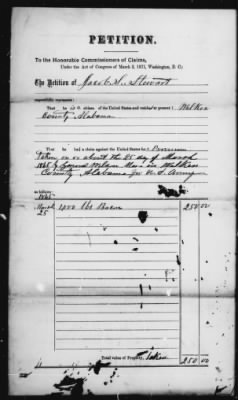 PETITION.
To the Honorable Commissioners of Claims,
Under the Act of Congress of March 3, 1871, Washington, D. C.:
The Petition of Jacob S. Stewart
respectfully represents:
That he is a citizen of the United States and resides at present Walker
County Alabama
That he has a claim against the United States for Provision
Taken on or about the 25 day of March
1865 by General Wilson in Walker
County Alabama for U S Army
as follows:
1865
March 25 1000 lbs Bacon 250 00
Total value of Property, Taken 250 00